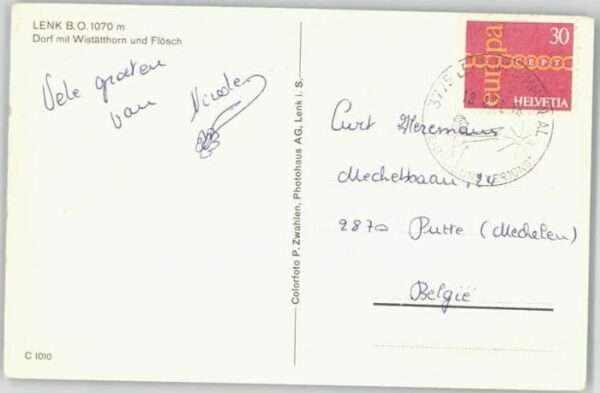 LENK B.O. 1070 m
Dorf mit Wistätthorn und Flösch
Vele groeten
van
C 1010
Colorfoto P. Zwahlen, Photohaus AG, Lenk i. S.
europa
CEPT
30
HELVETIA
3775
Curt
24
2870 Putte (Mechelen)
België